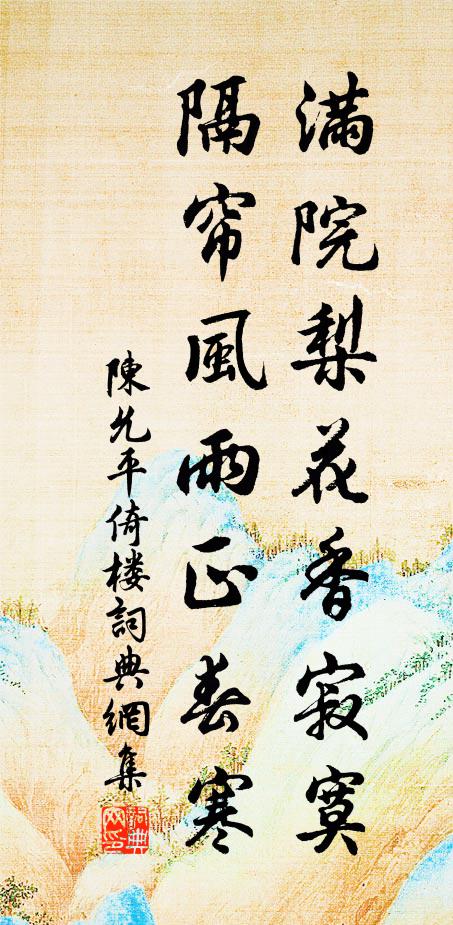 滿院梨花香寂寞
隔帘風雨正春寒
陳允平倚楼詞典網集
詞典
网印